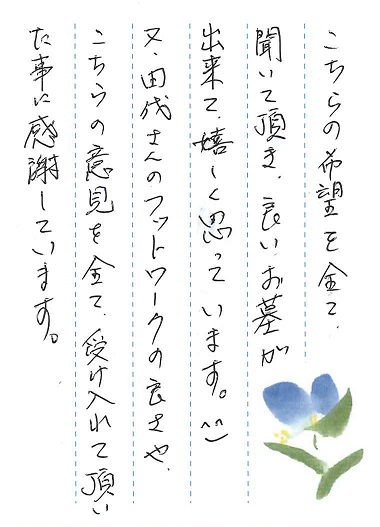 こちらの希望を全て、
聞いて頂き、良いお墓が
出来て、嬉しく思っています。^^)
又、田代さんのフットワークの良さや、
こちらの意見を全て、受け入れて頂い
た事に感謝しています。